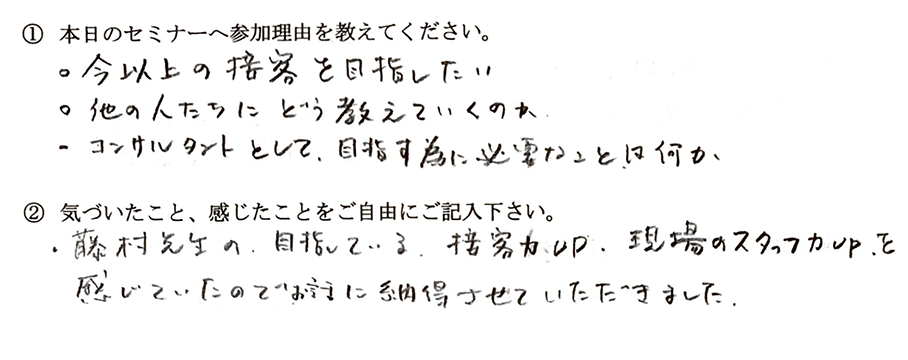 ① 本日のセミナーへ参加理由を教えてください。
○ 今以上の接客を目指したい
○ 他の人たちにどう教えていくのか
- コンサルタントとして、目指す為に必要なことは何か、
② 気づいたこと、感じたことをご自由にご記入下さい。
・藤村先生の、目指している、接客力UP、現場のスタッフ力UP、を
感じていたのでお話に納得させていただきました。